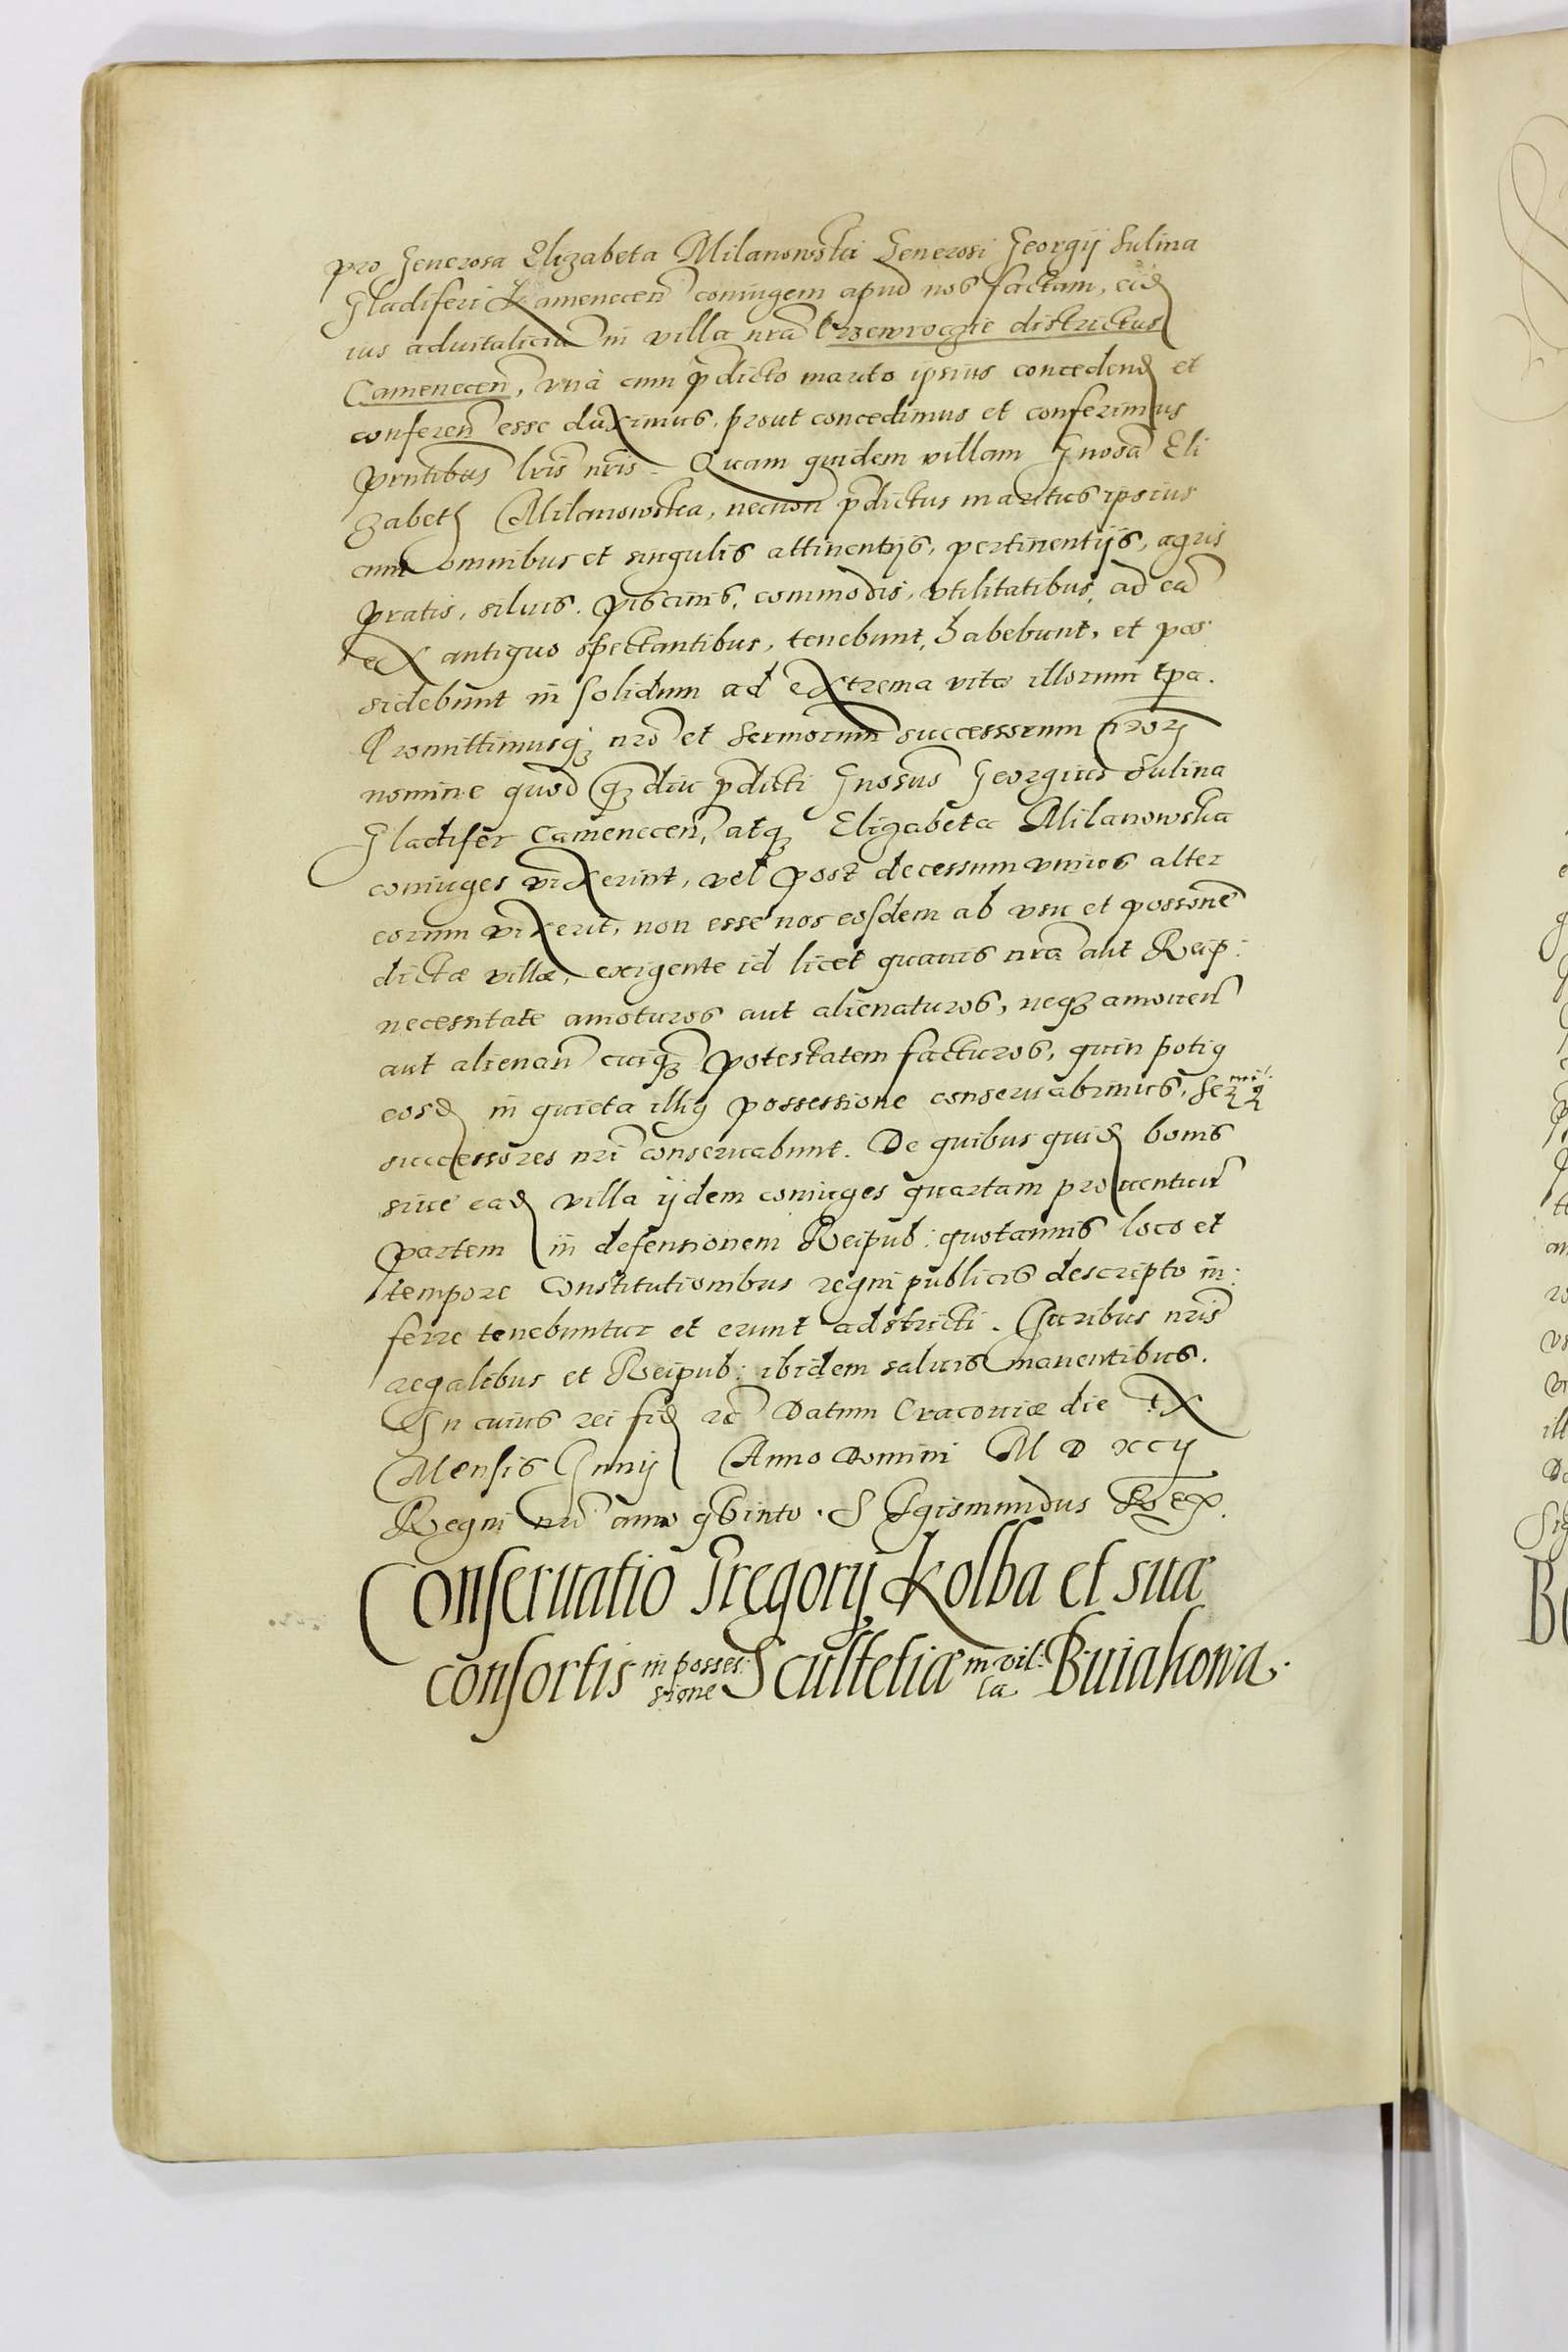 pro Generosa Elizabeta Milanowska Generosi Georgij Sulina
Gladiferi Kamenecen coniugem apud nos factam, eid
ius aduitaliciu in villa nra districtus
Camenecen, vnà cum pdicto marito ipsius concedend et
conferen esse duximus, prout concedimus et conferimus
pntibus lris nris. Quam quidem villam Gnosa Eli
zabeth Milanowska, necnon pdictus maritus ipsius
cum omnibus et singulis attinentijs, pertinentijs, agris
pratis, siluis, piscinis, commodis, vtilitatibus, ad ea
ex antiquo spectantibus, tenebunt, habebunt, et pos
sidebunt in solidum ad extrema vitæ illorum tpa.
Promittimusq; nro et Sermorum successorum nror
nomine quod q; diu pdicti Gnosus Georgius Sulina
Gladifer Camenecen, atq; Elizabeta Milanowska
coniuges vixerint, vel post decessum vnius alter
eorum vixerit, non esse nos eosdem ab vsu et possone
dictæ villæ, exigente id licet quauis nra aut Reip:
necessitate amoturos aut alienaturos, neq; amouen
aut alienan cuiq; potestatem facturos, quin potig
eosd in quieta illig possessione conseruabimus, Sermi q
successores nri conseruabunt. De quibus quid bonis
siue ead villa ijdem coniuges quartam prouentuu
partem in defensionem Reipub: quotannis loco et
tempore Constitutionibus regni publicis descripto in:
ferre tenebuntur et erunt adstricti. Iuribus nris
regalibus et Reipub: ibidem saluis manentibus.
In cuius rei fid rc Datum Cracouiæ die IX
Mensis Iunij Anno Domini M D XCij
Regni nri anno qvinto. Sigismundus Rex.
Conseruatio Gregorij Kolba et suæ
consortis in posses: sione Scultetiæ in vil: la Buiakowa.